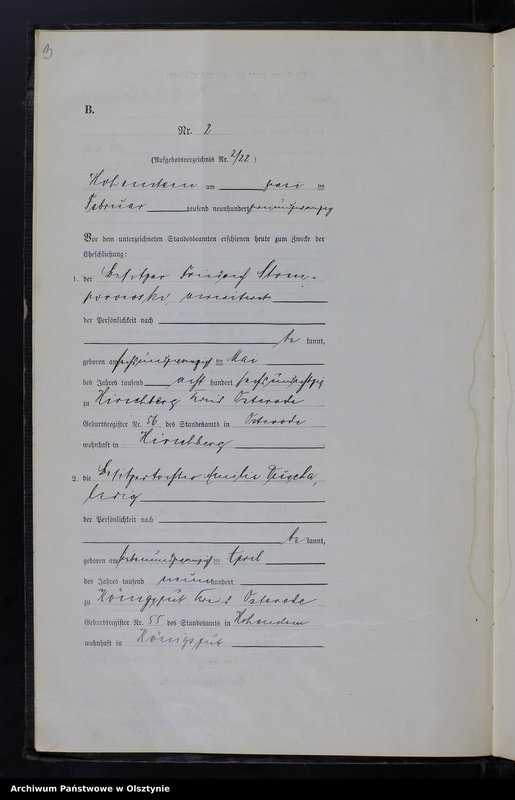 3
B.
Nr. 2
(Aufgebotsverzeichnis Nr. 2/22.)
Hohenstein am drei ten
Februar tausend neunhundert zweiundzwanzig
Vor dem unterzeichneten Standesbeamten erschienen heute zum Zwecke der
Eheschließung:
1. der Besitzer Friedrich
verwitwet
der Persönlichkeit nach
be kannt,
geboren am sechsundzwanzig ten Mai
des Jahres tausend acht hundert sechsundachtzig
zu Hirschberg Kreis Osterode
Geburtsregister Nr. 56 des Standesamts in Osterode
wohnhaft in Hirschberg
2. die Besitzertochter Emilie
ledig
der Persönlichkeit nach
be kannt,
geboren am siebenundzwanzig ten April
des Jahres tausend neun hundert
zu Königsgut Kreis Osterode
Geburtsregister Nr. 55 des Standesamts in Hohenstein
wohnhaft in Königsgut
Archiwum Państwowe w Olsztynie